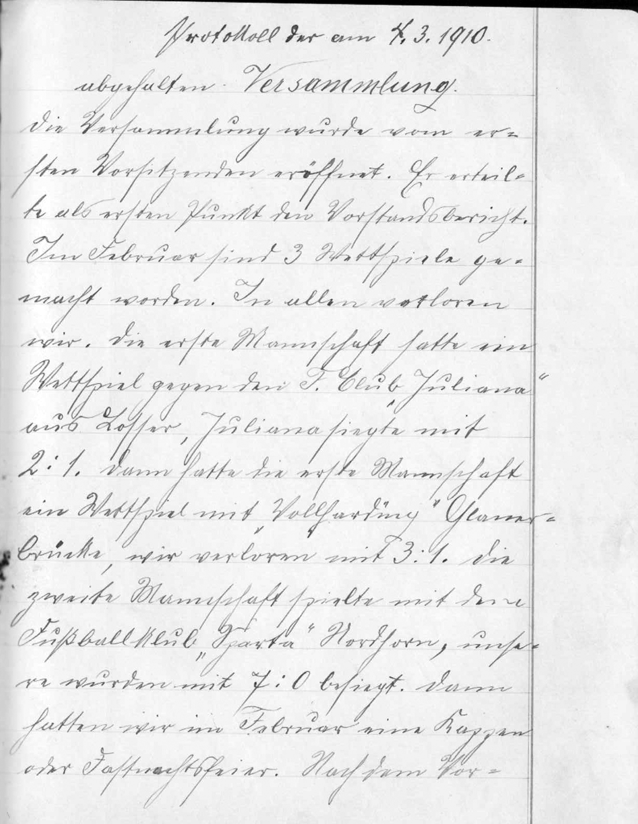 Protokoll der am 4.3.1910.
abgehalten Versammlung.
Die Versammlung wurde vom er=
sten Vorsitzenden eröffnet. Er erteil=
te als ersten Punkt den Vorstandsbericht.
Im Februar sind 3 Wettspiele ge=
macht worden. In allen verloren
wir. Die erste Mannschaft hatte ein
Wettspiel gegen den F. Club „Juliana“
aus Losser, Juliana siegte mit
2:1. Dann hatte die erste Mannschaft
ein Wettspiel mit „Vollharding“ Glaner=
brücke, wir verloren mit 3:1. Die
zweite Mannschaft spielte mit dem
Fußballklub „Sparta“ Nordhorn, unse=
re wurden mit 7:0 besiegt. Dann
hatten wir im Februar eine Kappen
oder Fastnachtsfeier. Nach dem Vor=